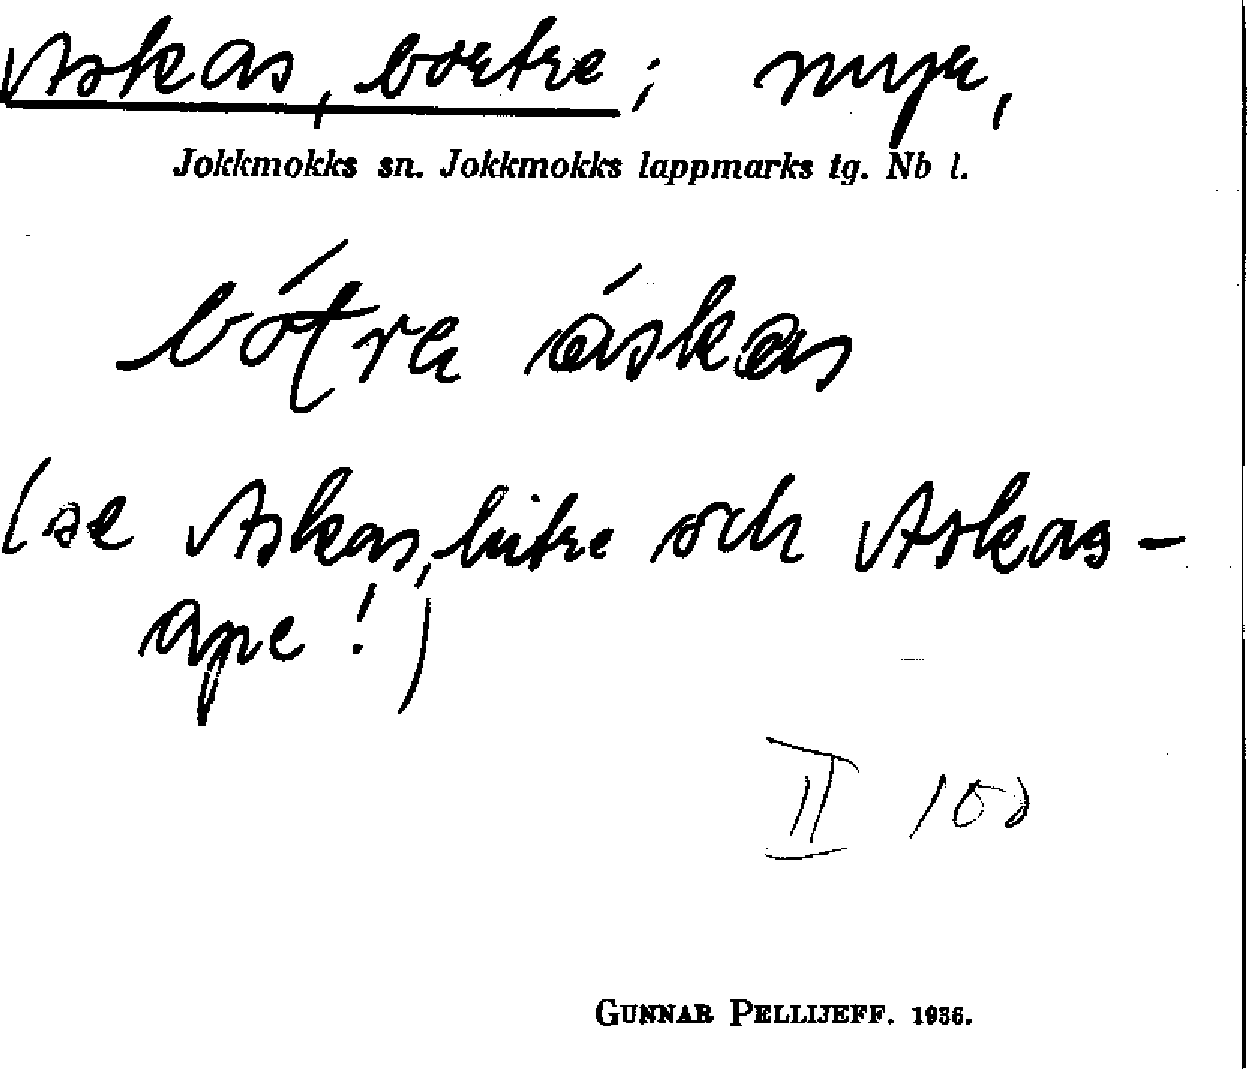 Askas, bortre; myr,
Jokkmokks sn. Jokkmokks lappmarks tg. Nb l.
bótra áskas
(se Askas, hitre och Askas-
ape!)
II 100
GUNNAR PELLIJEFF. 1936.